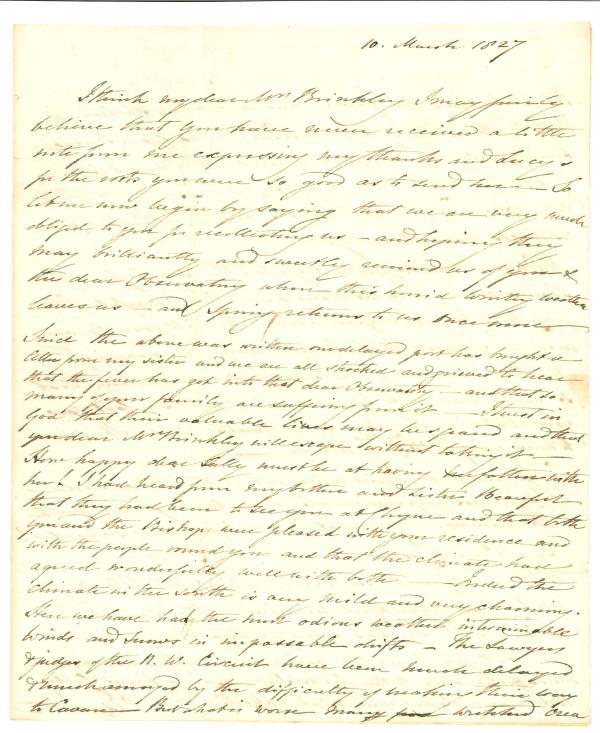 10. March 1827
I think my dear Mrs Brinkley I may fairly
believe that you have never received a little
note from me expressing my thanks and Lucy's
for the roots you were so good as to send her — So
let me now begin by saying that we are very much
obliged to you for recollecting us — and hoping they
may brilliantly and sweetly remind us of you &
the dear Observatory when this horrid wintry weather
leaves us — and Spring returns to us once more
Since the above was written our delayed post has brought a
letter from my sister and we are all shocked and grieved to hear
that the fever has got into that dear Observatory — and that so
many of your family are suffering from it — I trust in
God that their valuable lives may be spared and that
you dear Mrs Brinkley will escape without taking it —
How happy dear Sally must be at having her father with
her! I had heard from my brother and sister Beaufort
that they had been to see you at Cloyne and that both
you and the Bishop were pleased with your residence and
with the people round you and that the climate had
agreed wonderfully well with both — Indeed the
climate in the South is very mild and very charming.
Here we have had the most odious weather interminable
winds and snows in impassable drifts — The Lawyers
& judges of the N. W. Circuit have been much delayed
& much annoyed by the difficulty of making their way
to Cavan But what is worse many wretched